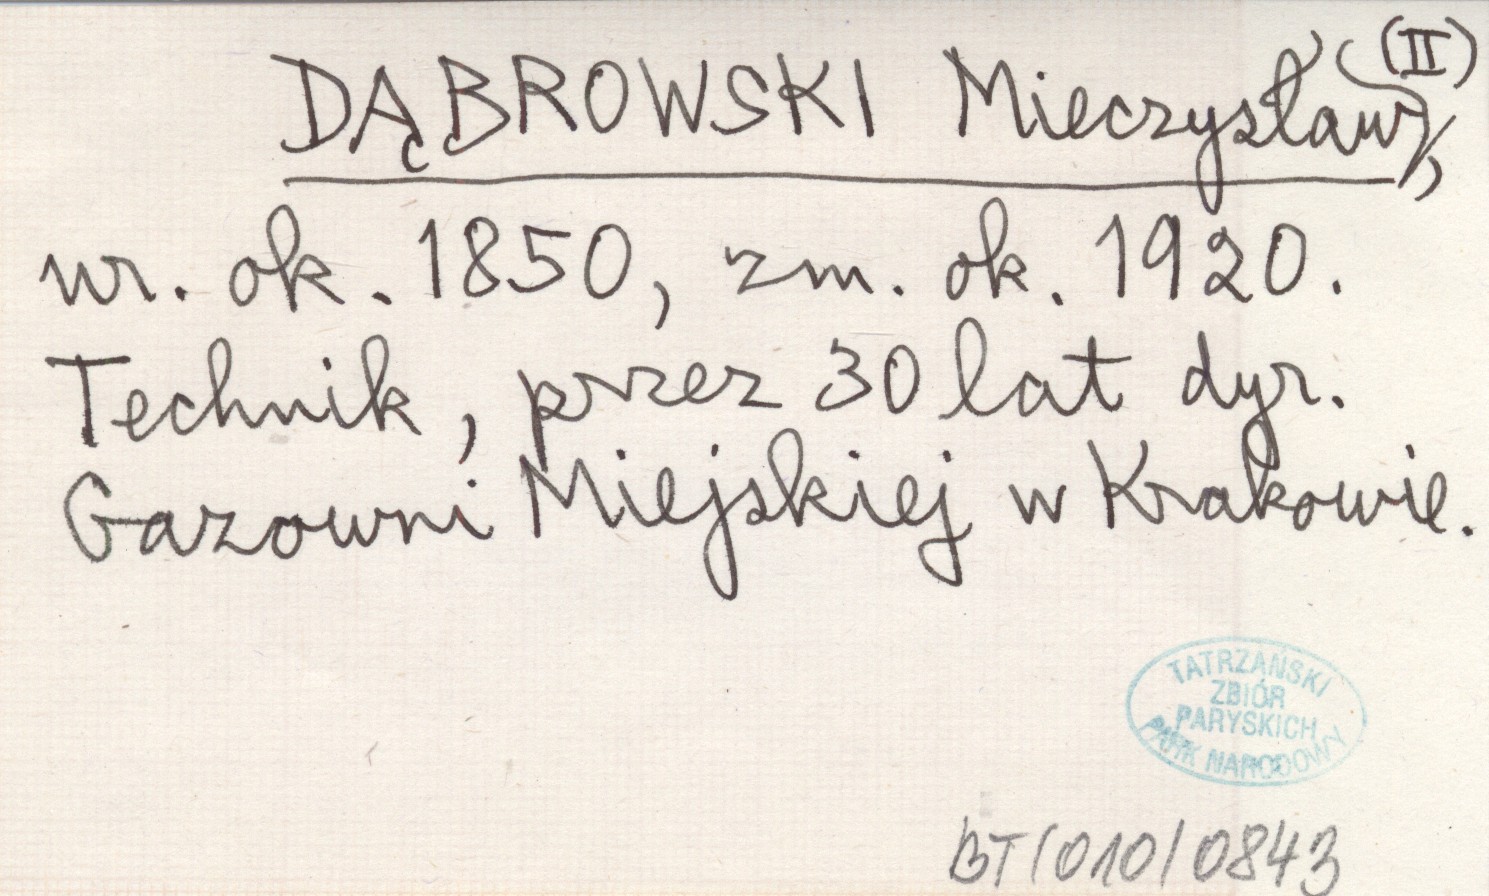 DĄBROWSKI Mieczysław (II),
ur. ok. 1850, zm. ok. 1920.
Technik, przez 30 lat dyr.
Gazowni Miejskiej w Krakowie.
TATRZAŃSKI
ZBIÓR
PARYSKICH
PARK NARODOWY
BT/010/0843